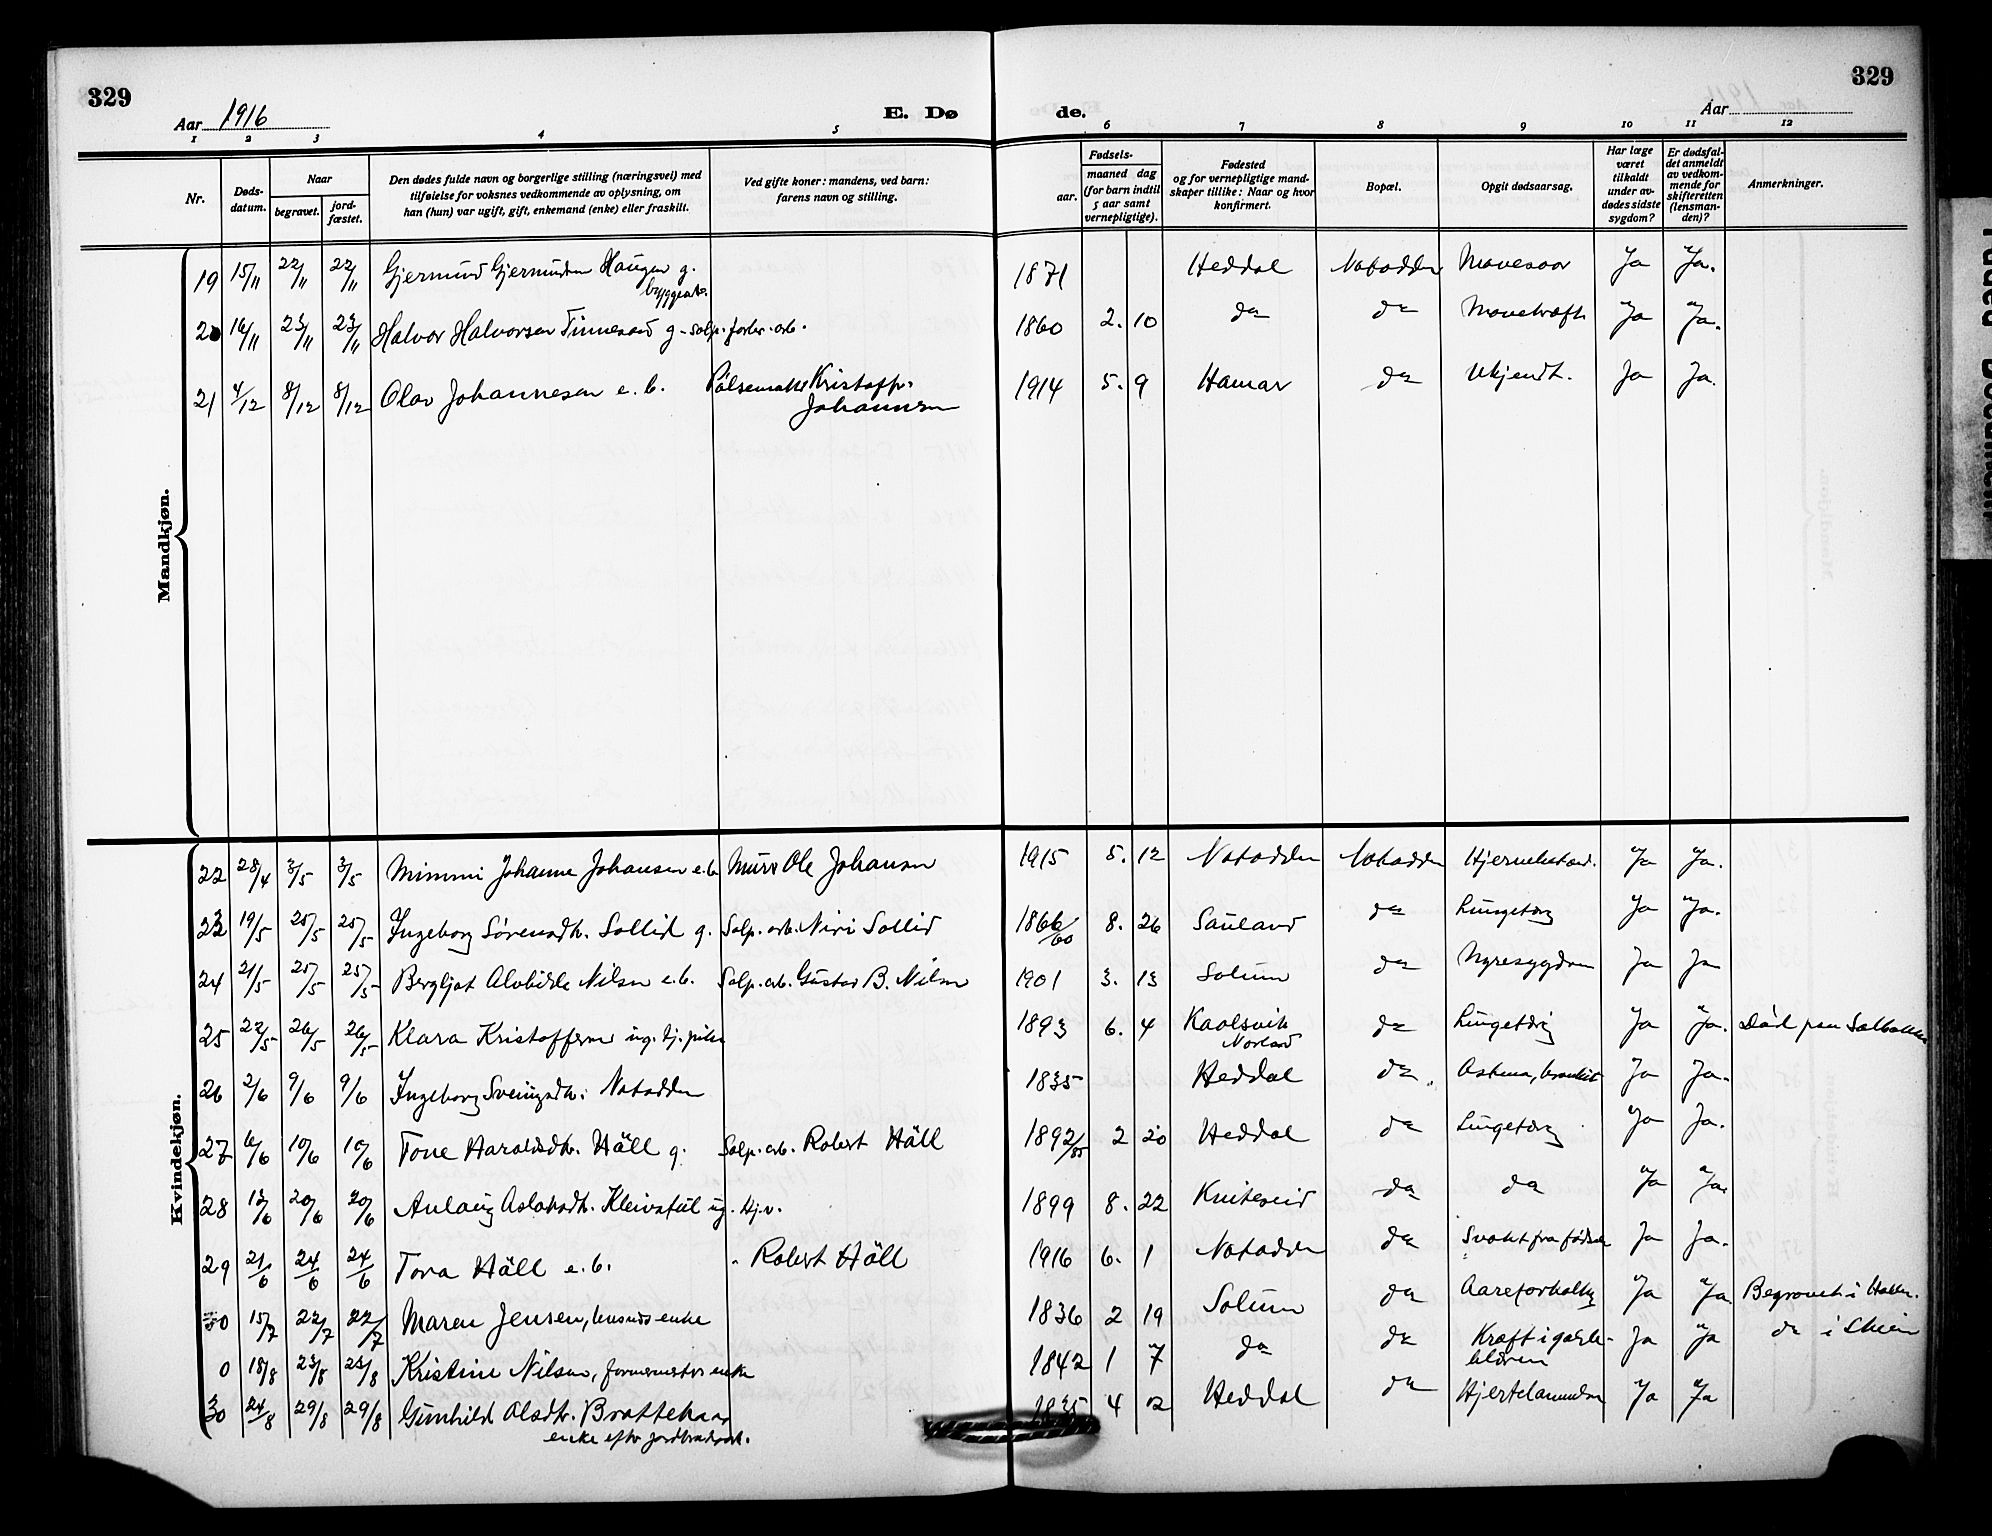 329
329
Aar 1916
E. Dø
de.
Aar
1 2 3 4 5 6 7 8 9 10 11 12
Nr.
Døds-
datum.
Naar
begravet.
jord-
fæstet.
Den dødes fulde navn og borgerlige stilling (næringsvei) med
tilføielse for voksnes vedkommende av oplysning, om
han (hun) var ugift, gift, enkemand (enke) eller fraskilt.
Ved gifte koner: mandens, ved barn:
farens navn og stilling.
Fødsels-
aar.
maaned dag
(for barn indtil
5 aar samt
vernepligtige).
Fødested
og for vernepligtige mand-
skaper tillike: Naar og hvor
konfirmert.
Bopæl.
Opgit dødsaarsag.
Har læge
været
tilkaldt
under av-
dødes sidste
sygdom?
Er dødsfal-
det anmeldt
av vedkom-
mende for
skifteretten
(lensman-
den)?
Anmerkninger.
Mandkjøn.
19 15/11 22/11 22/11 Gjermund Gjermundsen Haugen g. 1871 Heddal Notodden Mavesaar Ja Ja.
20 16/11 23/11 23/11 Halvor Halvorsen Tinnesand g. salp. forbr. arb. 1860 2. 10 do do Mavekræft Ja Ja.
21 4/12 8/12 8/12 Olav Johannesen e. b. Pølsemaker Kristoffer 1914 5. 9 Hamar do Ukjendt. Ja Ja.
Johannesen
Kvindekjøn.
22 28/4 3/5 3/5 Mimmi Johanne Johansen e.b. Murer Ole Johansen 1915 5. 12 Notodden Notodden Hjernebetænd. Ja Ja.
23 19/5 25/5 25/5 Ingeborg Sørensdtr. Sollid g. Salp. arb. Niri Sollid 1866/60 8. 26 Sauland do Lungetbg Ja Ja.
24 21/5 25/5 25/5 Bergljot Alvhilde Nilsen e.b. Salp. arb. Gustav B. Nilsen 1901 3. 13 Solum do Nyresygdom Ja Ja
25 22/5 26/5 26/5 Klara Kristoffersen ug. tj. pike 1893 6. 4 do Lungetbg Ja Ja. Død paa
Norland
26 2/6 9/6 9/6 Ingeborg Sveinsdtr. Notodden 1835 Heddal do. Astma, bronkit Ja Ja.
27 6/6 10/6 10/6 Tone Haraldsdtr. Häll g. Salp. arb. Robert Häll 1892/85 2 20 Heddal do Lungetbg Ja Ja.
28 13/6 20/6 20/6 Aulaug Aslaksdtr. Kleivstul ug. Hj.v. 1899 8. 22 Kviteseid do do Ja Ja.
29 21/6 24/6 24/6 Tora Häll e.b. " Robert Häll 1916 6. 1 Notodden do Svakt fra fødsel Ja Ja.
30 15/7 22/7 22/7 Maren Jensen, enke 1836 2 19 Solum do Aareforkalkg Ja Ja Begravet i
0 18/8 23/8 23/8 Kristine Nilsen, formermester enke 1842 1 7 do do Kræft i galde- Ja Ja do i Skien
blæren
30 24/8 29/8 29/8 Gunhild Olsdtr. Brattekaas 1835 4 2 Heddal do Hjertelammelse Ja Ja
enke efter